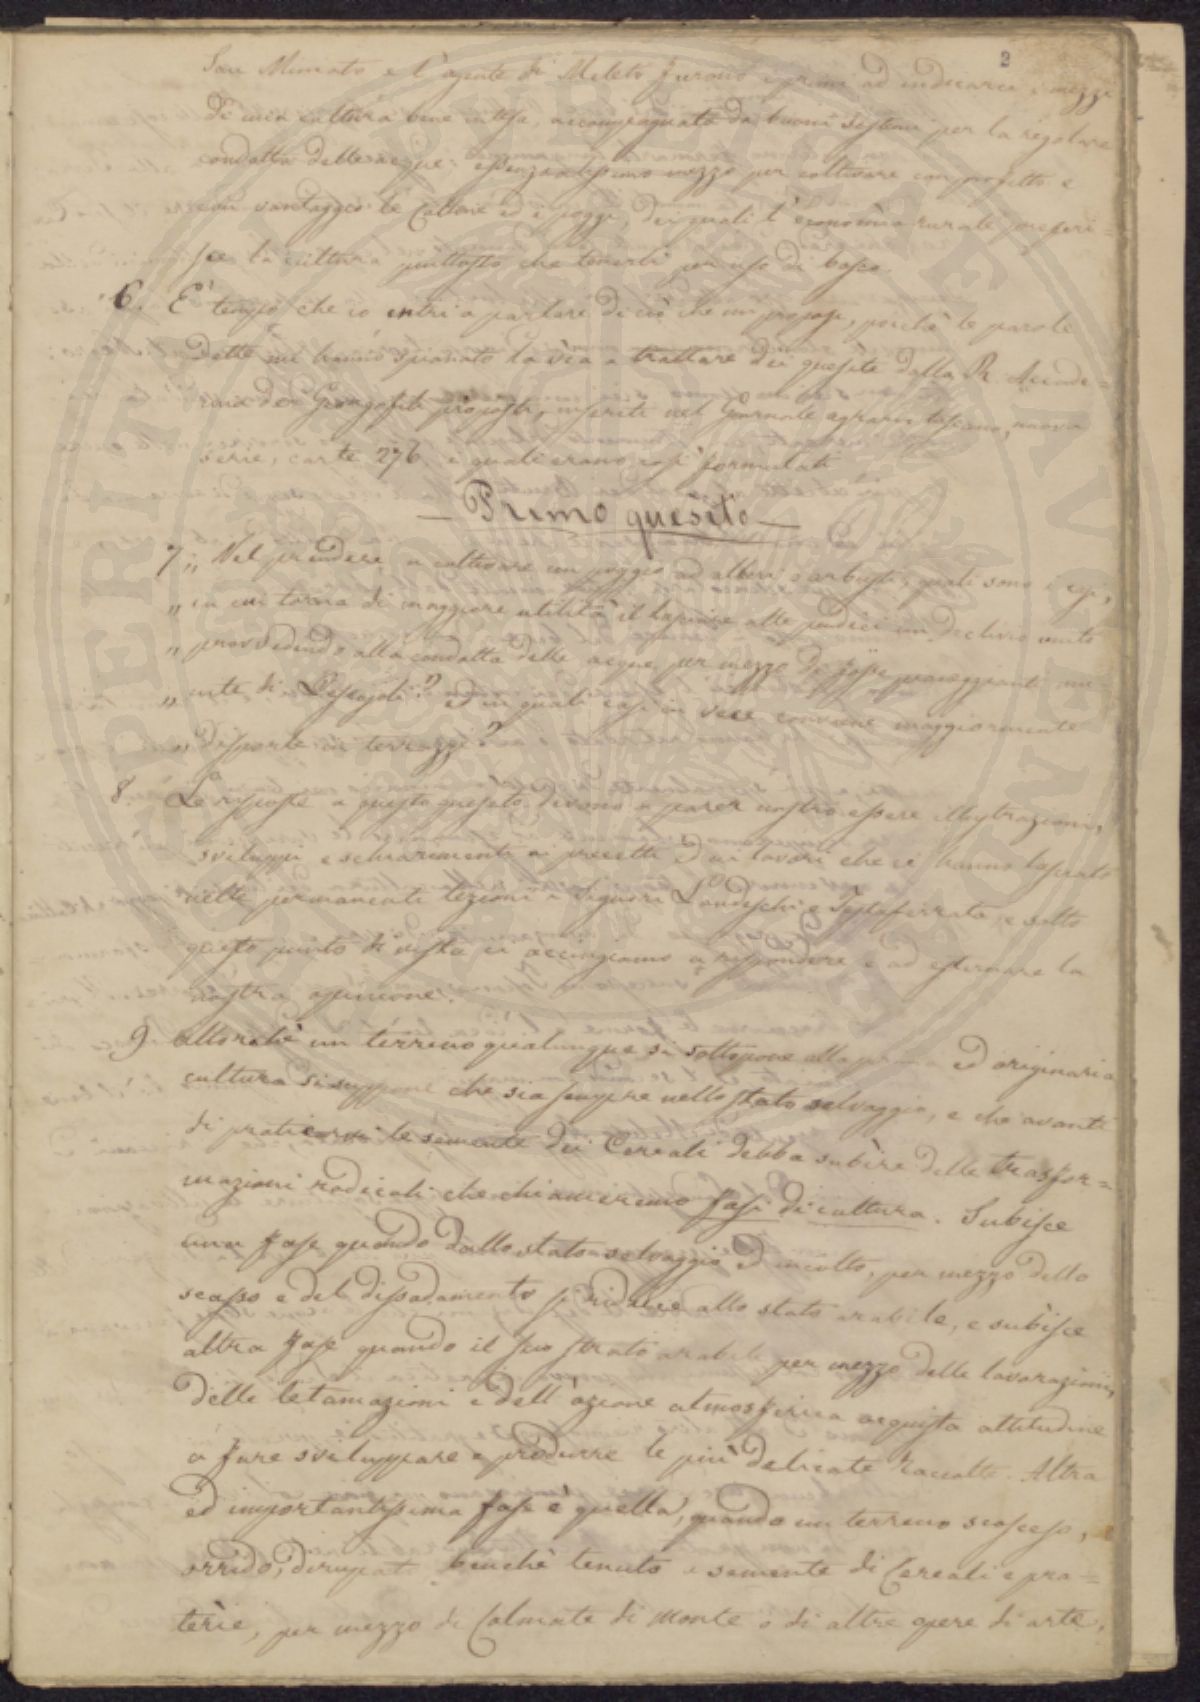 2
San Miniato e l'agente di Meleto furono i primi ad indicarci i mezzi
di una cultura bene intesa, accompagnata da buoni sistemi per la regolare
condotta delle acque: essenzialissimo mezzo per coltivare con profitto e
con vantaggio le Colline ed i poggi, dei quali l'economia rurale preferi=
sce la cultura piuttosto che tenerli per uso di bosco.
6. E' tempo che io entri a parlare di ciò che mi proposi, poichè le parole
dette mi hanno spianato la via a trattare dei quesiti dalla R. Accade=
mia dei Georgofili proposti, inseriti nel Giornale agrario toscano, nuova
serie, carte 276, i quali erano così formulati
— Primo quesito —
7 „ Nel prendere a coltivare un poggio ad alberi o arbusti, quali sono i casi,
„ in cui torna di maggiore utilità il lasciare alle pendici un declivio unito
„ provvedendo alla condotta delle acque per mezzo di fosse pareggianti mu=
„ nite di Pescajoli? ed in quali casi in vece conviene maggiormente
„ disporle in terrazzi?
8 Le risposte a questo quesito devono a parer nostro essere illustrazioni,
sviluppi e schiarimenti ai precetti ed ai lavori che ci hanno lasciato
nelle permanenti lezioni i Signori Landeschi e Testaferrata, e sotto
questo punto di vista ci accingiamo a rispondere e ad esternare la
nostra opinione.
9 Allorchè un terreno qualunque si sottopone alla prima ed originaria
cultura si suppone che sia sempre nello stato selvaggio, e che avanti
di praticarvi le semente dei Cereali debba subire delle trasfor=
mazioni radicali che chiameremo fasi di cultura. Subisce
una fase quando dallo stato selvaggio ed incolto, per mezzo dello
scasso e del dissodamento si riduce allo stato arabile, e subisce
altra fase quando il suo strato arabile per mezzo delle lavorazioni,
delle letamazioni e dell'azione atmosferica acquista attitudine
a fare sviluppare e produrre le più delicate raccolte. Altra
ed importantissima fase è quella, quando un terreno scosceso,
orrido, dirupato benchè tenuto a semente di Cereali e pra=
terie, per mezzo di Colmate di monte o di altre opere di arte,